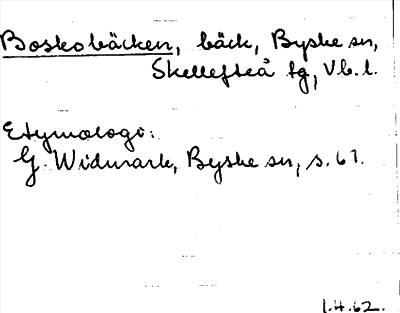 Boskobäcken, bäck, Byske sn,
Skellefteå tg, Vb. l.
Etymologi:
G. Widmark, Byske sn, s. 61.
1.4.62.